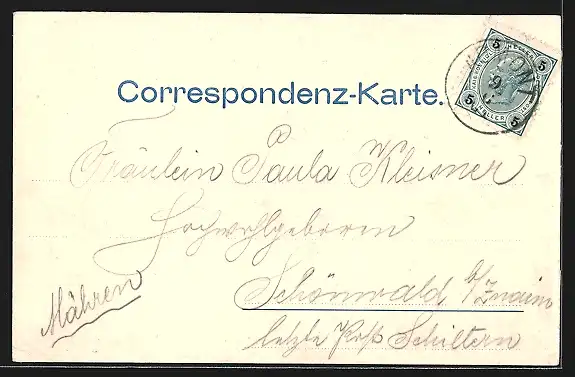 Correspondenz-Karte.
5 HELLER 5
5 HELLER 5
P
Fräulein Paula Kleisner
Hochwohlgeboren
Schönwald b/Znaim
Mähren
letzte Post Schiltern